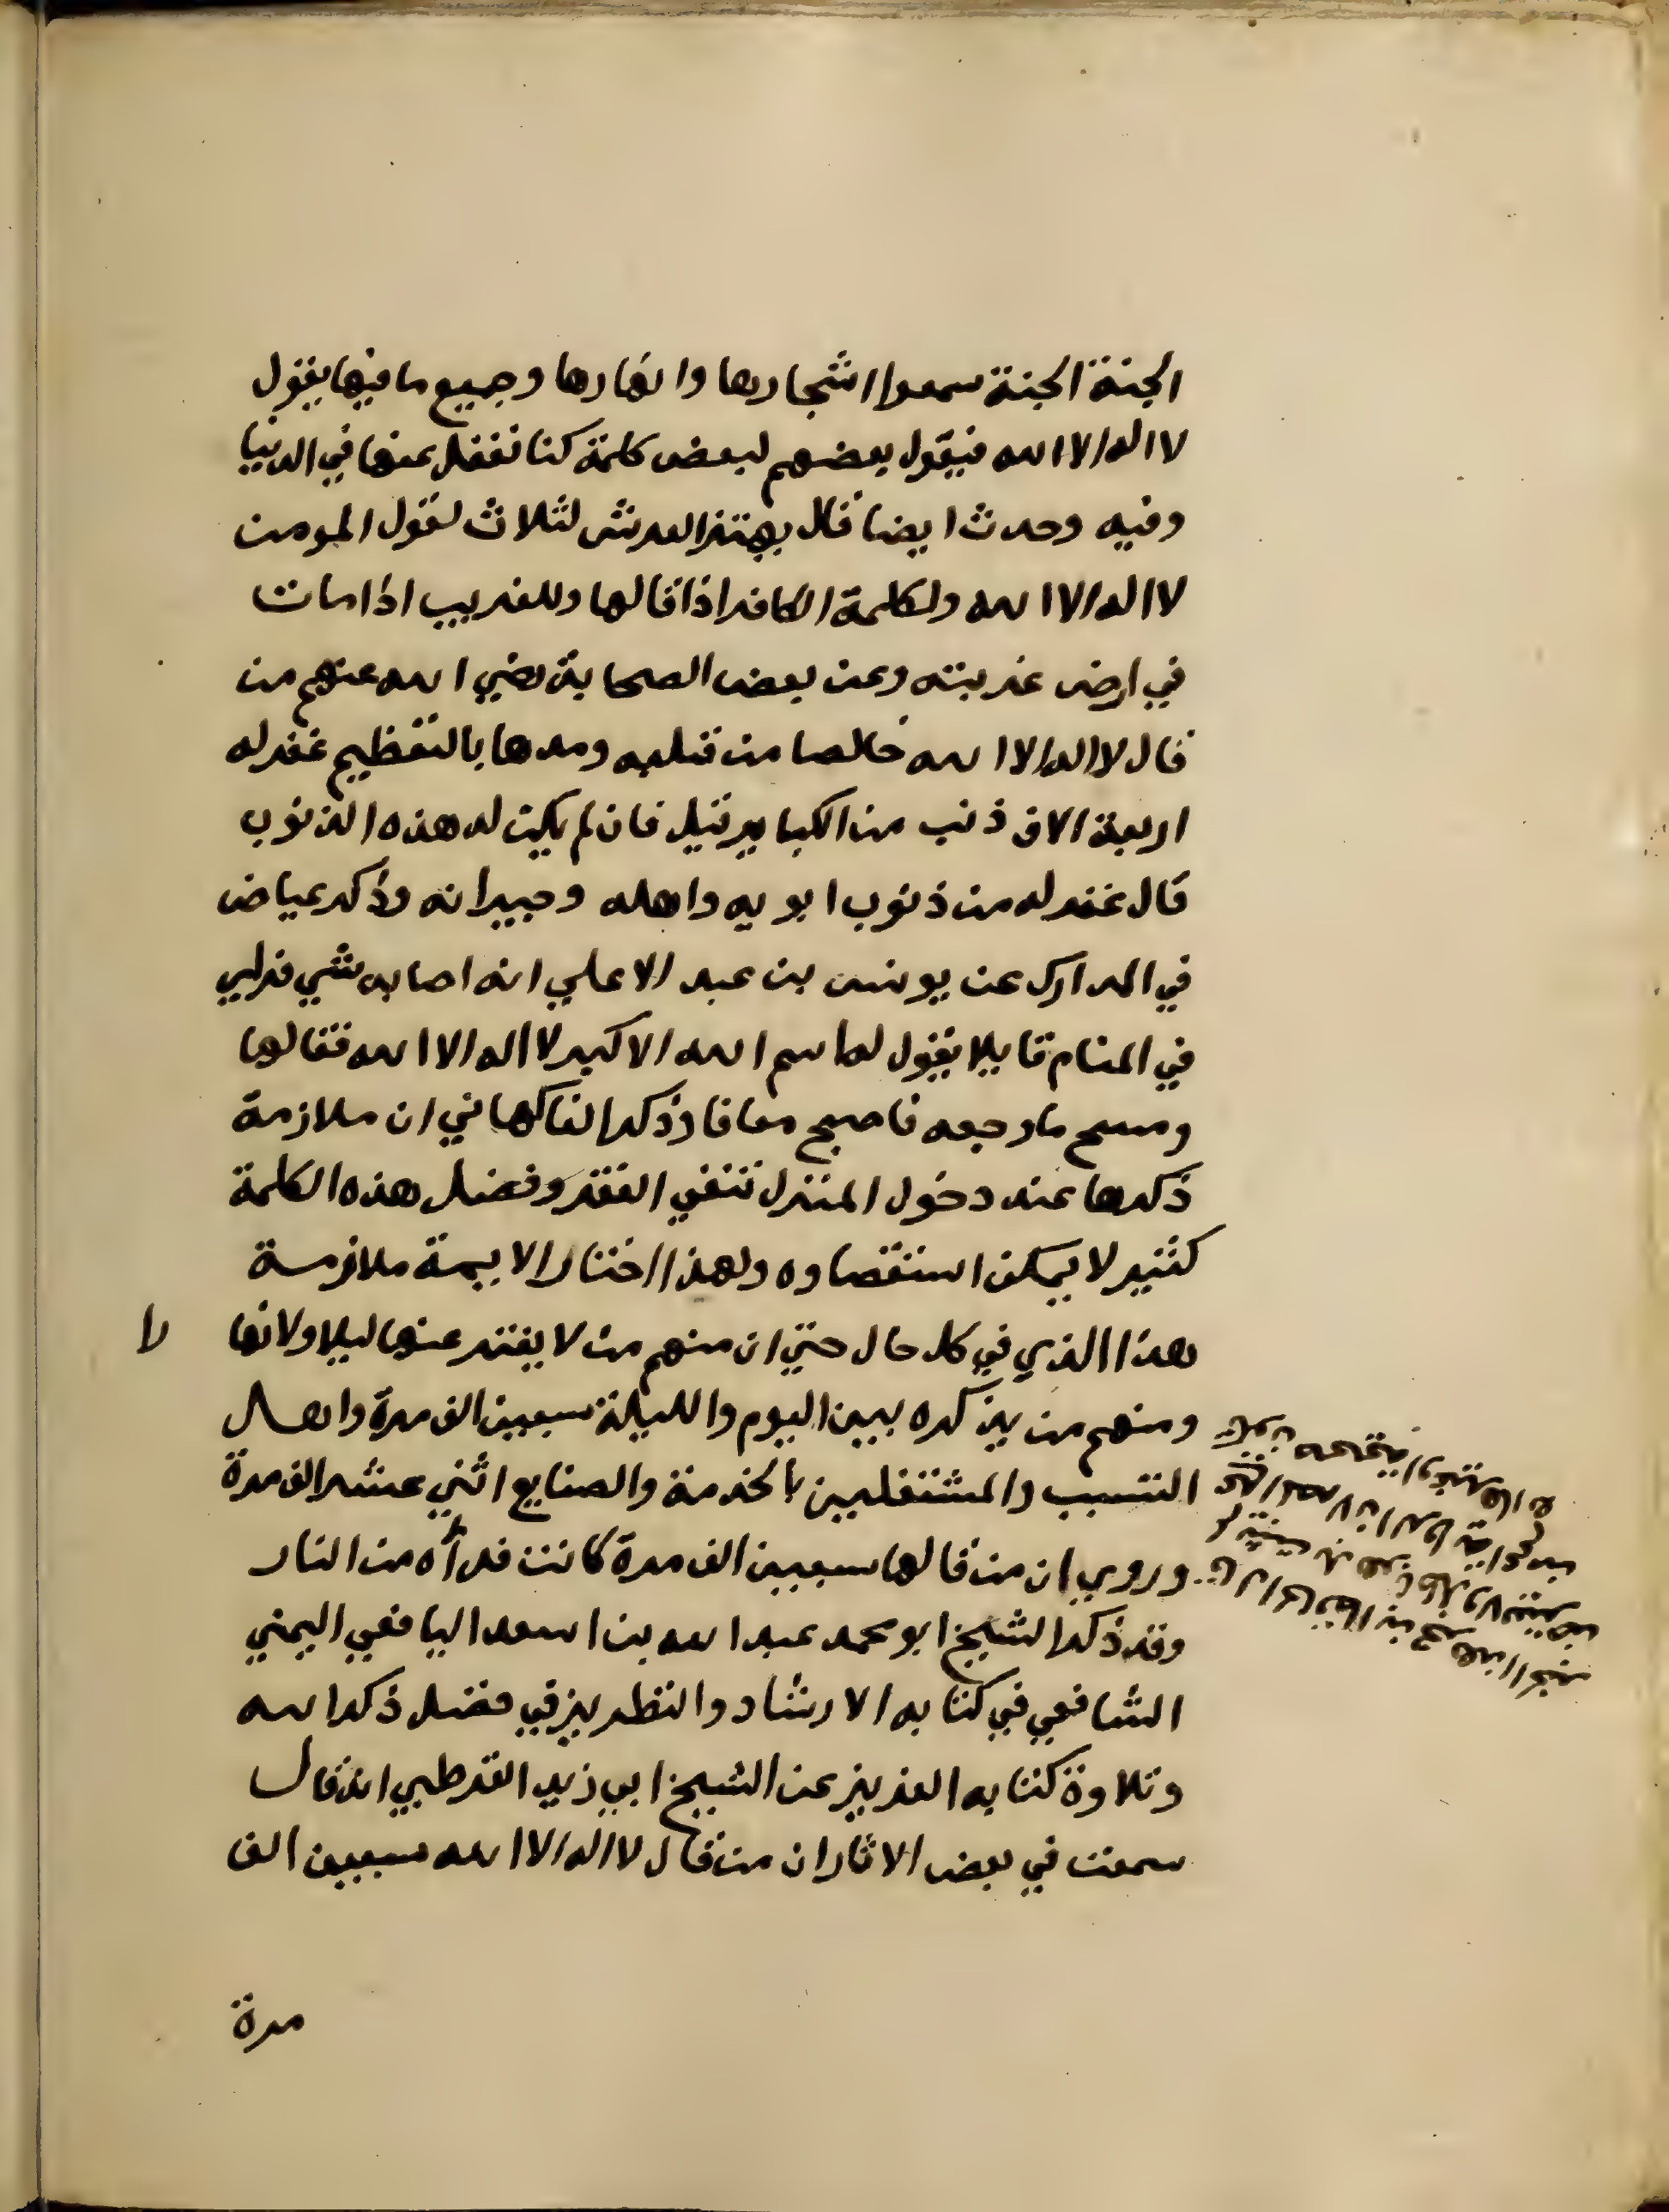 الجنة الجنة سمعوا اشجارها وانهارها وجميع ما فيها يقول
لا اله الا الله فيقول بعضهم لبعض كلمة كنا نغفل عنها في الدنيا
وفيه وحدث ايضا قال يهتز العرش لثلاث لقول المومن
لا اله الا الله ولكلمة الكافر اذا قالها وللغريب اذا مات
في ارض غربته وعن بعض الصحابة رضي الله عنهم من
قال لا اله الا الله خالصا من قلبه ومدها بالتعظيم غفر له
اربعة الاف ذنب من الكباير قيل فان لم يكن له هذه الذنوب
قال غفر له من ذنوب ابويه واهله وجيرانه وذكر عياض
في المدارك عن يونس بن عبد الاعلي انه اصابه شي فراي
في المنام قايلا يقول له اسم الله الاكبر لا اله الا الله فقالها
ومسح ما وجعه فاصبح معافا وذكر الفاكهاني ان ملازمة
ذكرها عند دخول المنزل تنفي الفقر وفضل هذه الكلمة
كثير لا يمكن استقصاوه ولهذا اختار الايمة ملازمة
هذا الذي في كل حال حتي ان منهم من لا يفتر عنها ليلا ولا نها
را
ومنهم من يذكره بين اليوم والليلة سبعين الف مرة واهل
التسبب والمشتغلين بالخدمة والصنايع اثني عشر الف مرة
وروي ان من قالها سبعين الف مرة كانت فداه من النار
وقد ذكر الشيخ ابو محمد عبد الله بن اسعد اليافعي اليمني
الشافعي في كتابه الارشاد والتطريز في فضل ذكر الله
وتلاوة كتابه العزيز عن الشيخ ابي زيد القرطبي انه قال
سمعت في بعض الاثار ان من قال لا اله الا الله سبعين الف
مرة